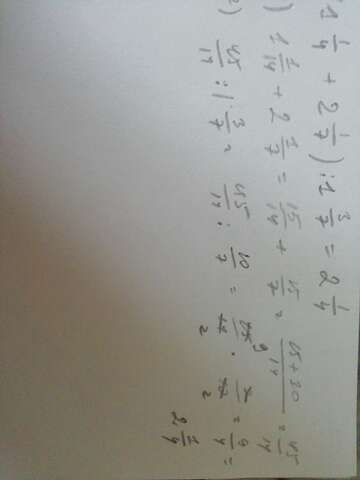 1 1/4 + 2 1/7) : 1 3/7 = 2 1/4
) 1 1/14 + 2 1/7 = 15/14 + 15/7 = 15+30/14 = 45/14
2) 45/14 : 1 3/7 = 45/14 : 10/7 = 45/14 · 7/10 = 9/4 = 2 1/4